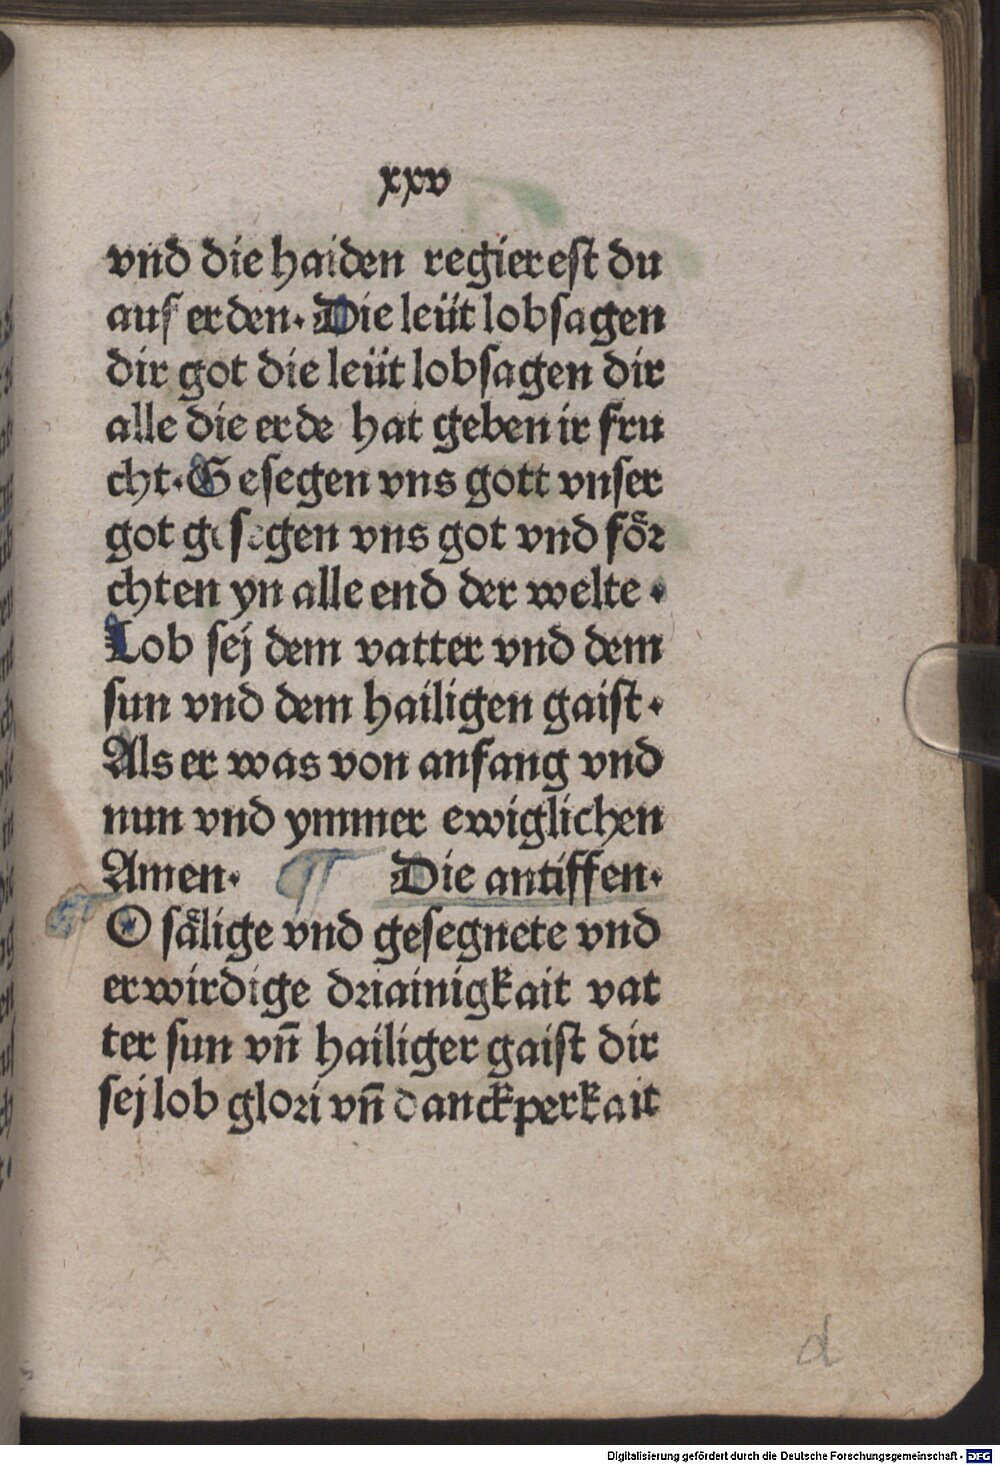 xxv
vnd die haiden regierest du
auf erden. Die leüt lobsagen
dir got die leüt lobsagen dir
alle die erde hat geben ir fru
cht. Gesegen vns gott vnser
got gesegen vns got vnd foͤr
chten yn alle end der welte.
Lob sej dem vatter vnd dem
sun vnd dem hailigen gaist.
Als er was von anfang vnd
nun vnd ymmer ewiglichen
Amen. ¶ Die antiffen.
O saͤlige vnd gesegnete vnd
erwirdige driainigkait vat
ter sun vn̄ hailiger gaist dir
sej lob glori vn̄ danckperkait
d
Digitalisierung gefördert durch die Deutsche Forschungsgemeinschaft - DFG